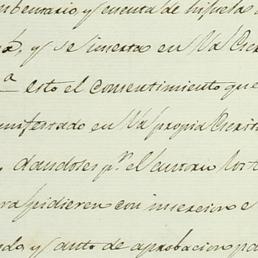 mbentario, y cuenta de hijuela
y se inserta en Va Escri
a esto el consentimiento que
anifestado en Va propia Escrit
dandoses pr. el
ra pidieren con insercion e
do, y auto de aprobacion pa